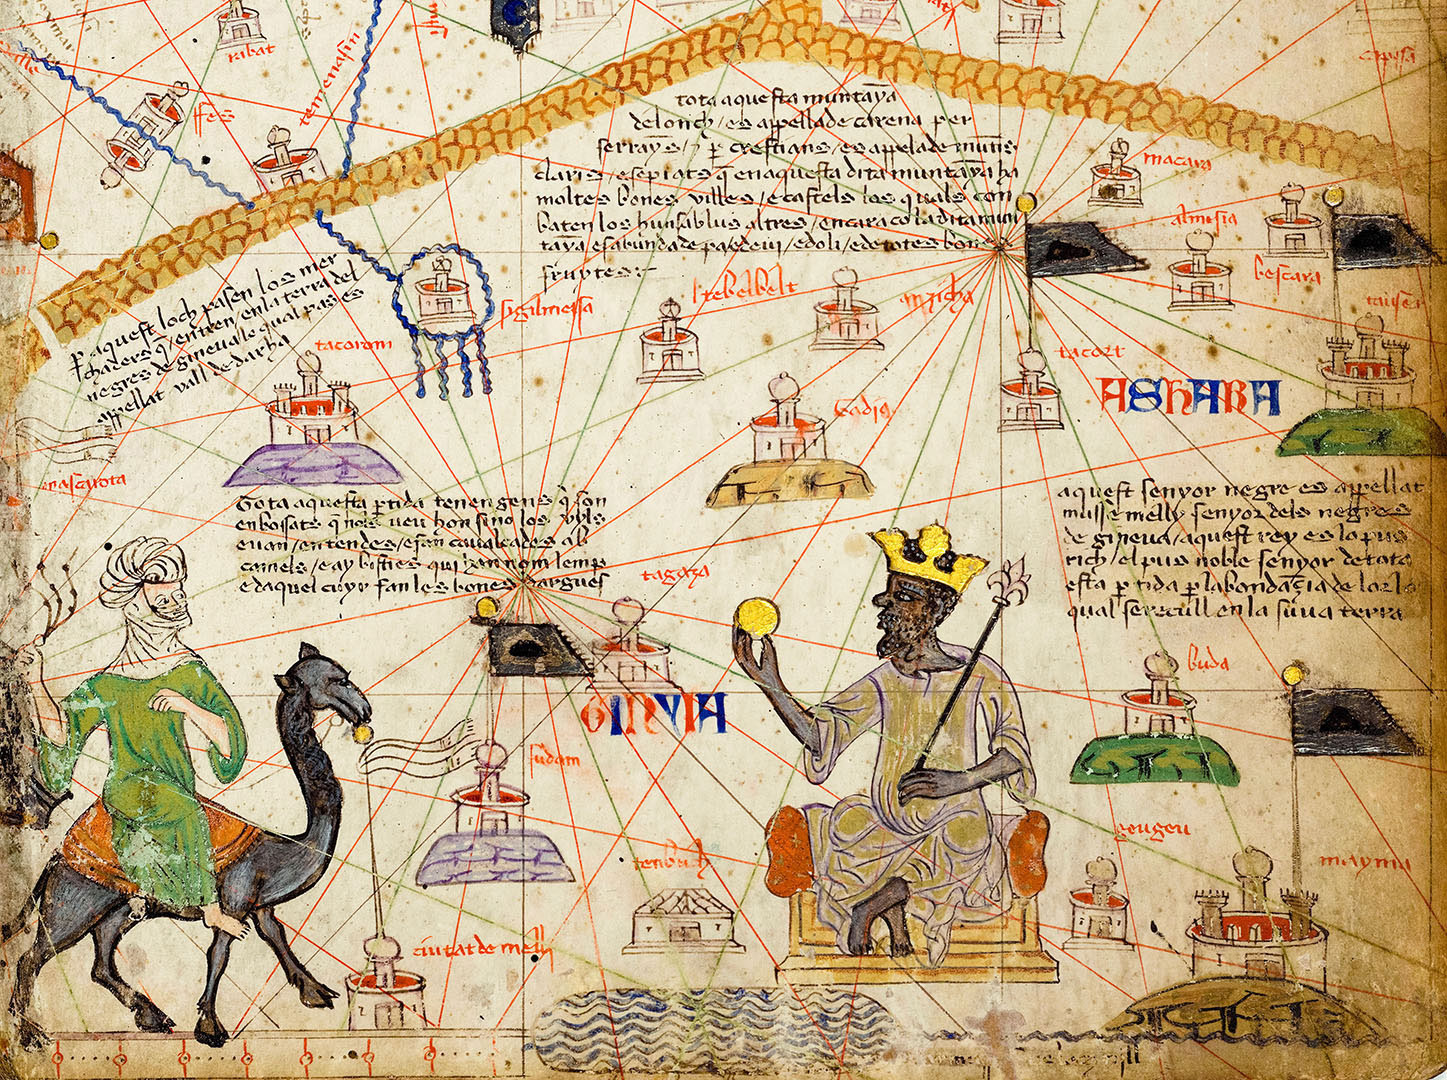 ribat
fes
tota aquesta muntaya
de lonch / es appellade carena per
serrayns / ⁊ per crestians / es appelade muntis
claris / e sepiats q̃ en aquesta dita muntaya ha
moltes bones villes / e castels los quals con
baten los huns ab lus altres / encara co la dita mun
taya es abunda de pa e de vi / e d oli / e de totes bones
fruytes :~
macara
almesia
bescara
p̱ aquest loch pasen los mer
chaders q̃ / entren / en la terra del
negres de gineva / le qual pas es
appellat vall de darha
sigilmessa
tacorom
tacort
ASHARA
tota aquesta p̱tida tenen gens q̃ son
enbossats q̃ nols veu hom sino los uyls
e van / en tendes / e fan cavalcades ab
camels / e ay bisties qui han nom lemp
e daquel cuyr fan les bones dargues
tagaza
aquest senyor negre es appellat
musse melly senyor dels negres
de gineva / aquest rey es lo pus
rich / el pus noble senyor de tota
esta p̱tida p̱ labondaçia de lor lo
qual se recull en la suua terra
GINYIA
sudam
buda
tenbuch
geugeu
mayma
ciutat de melli